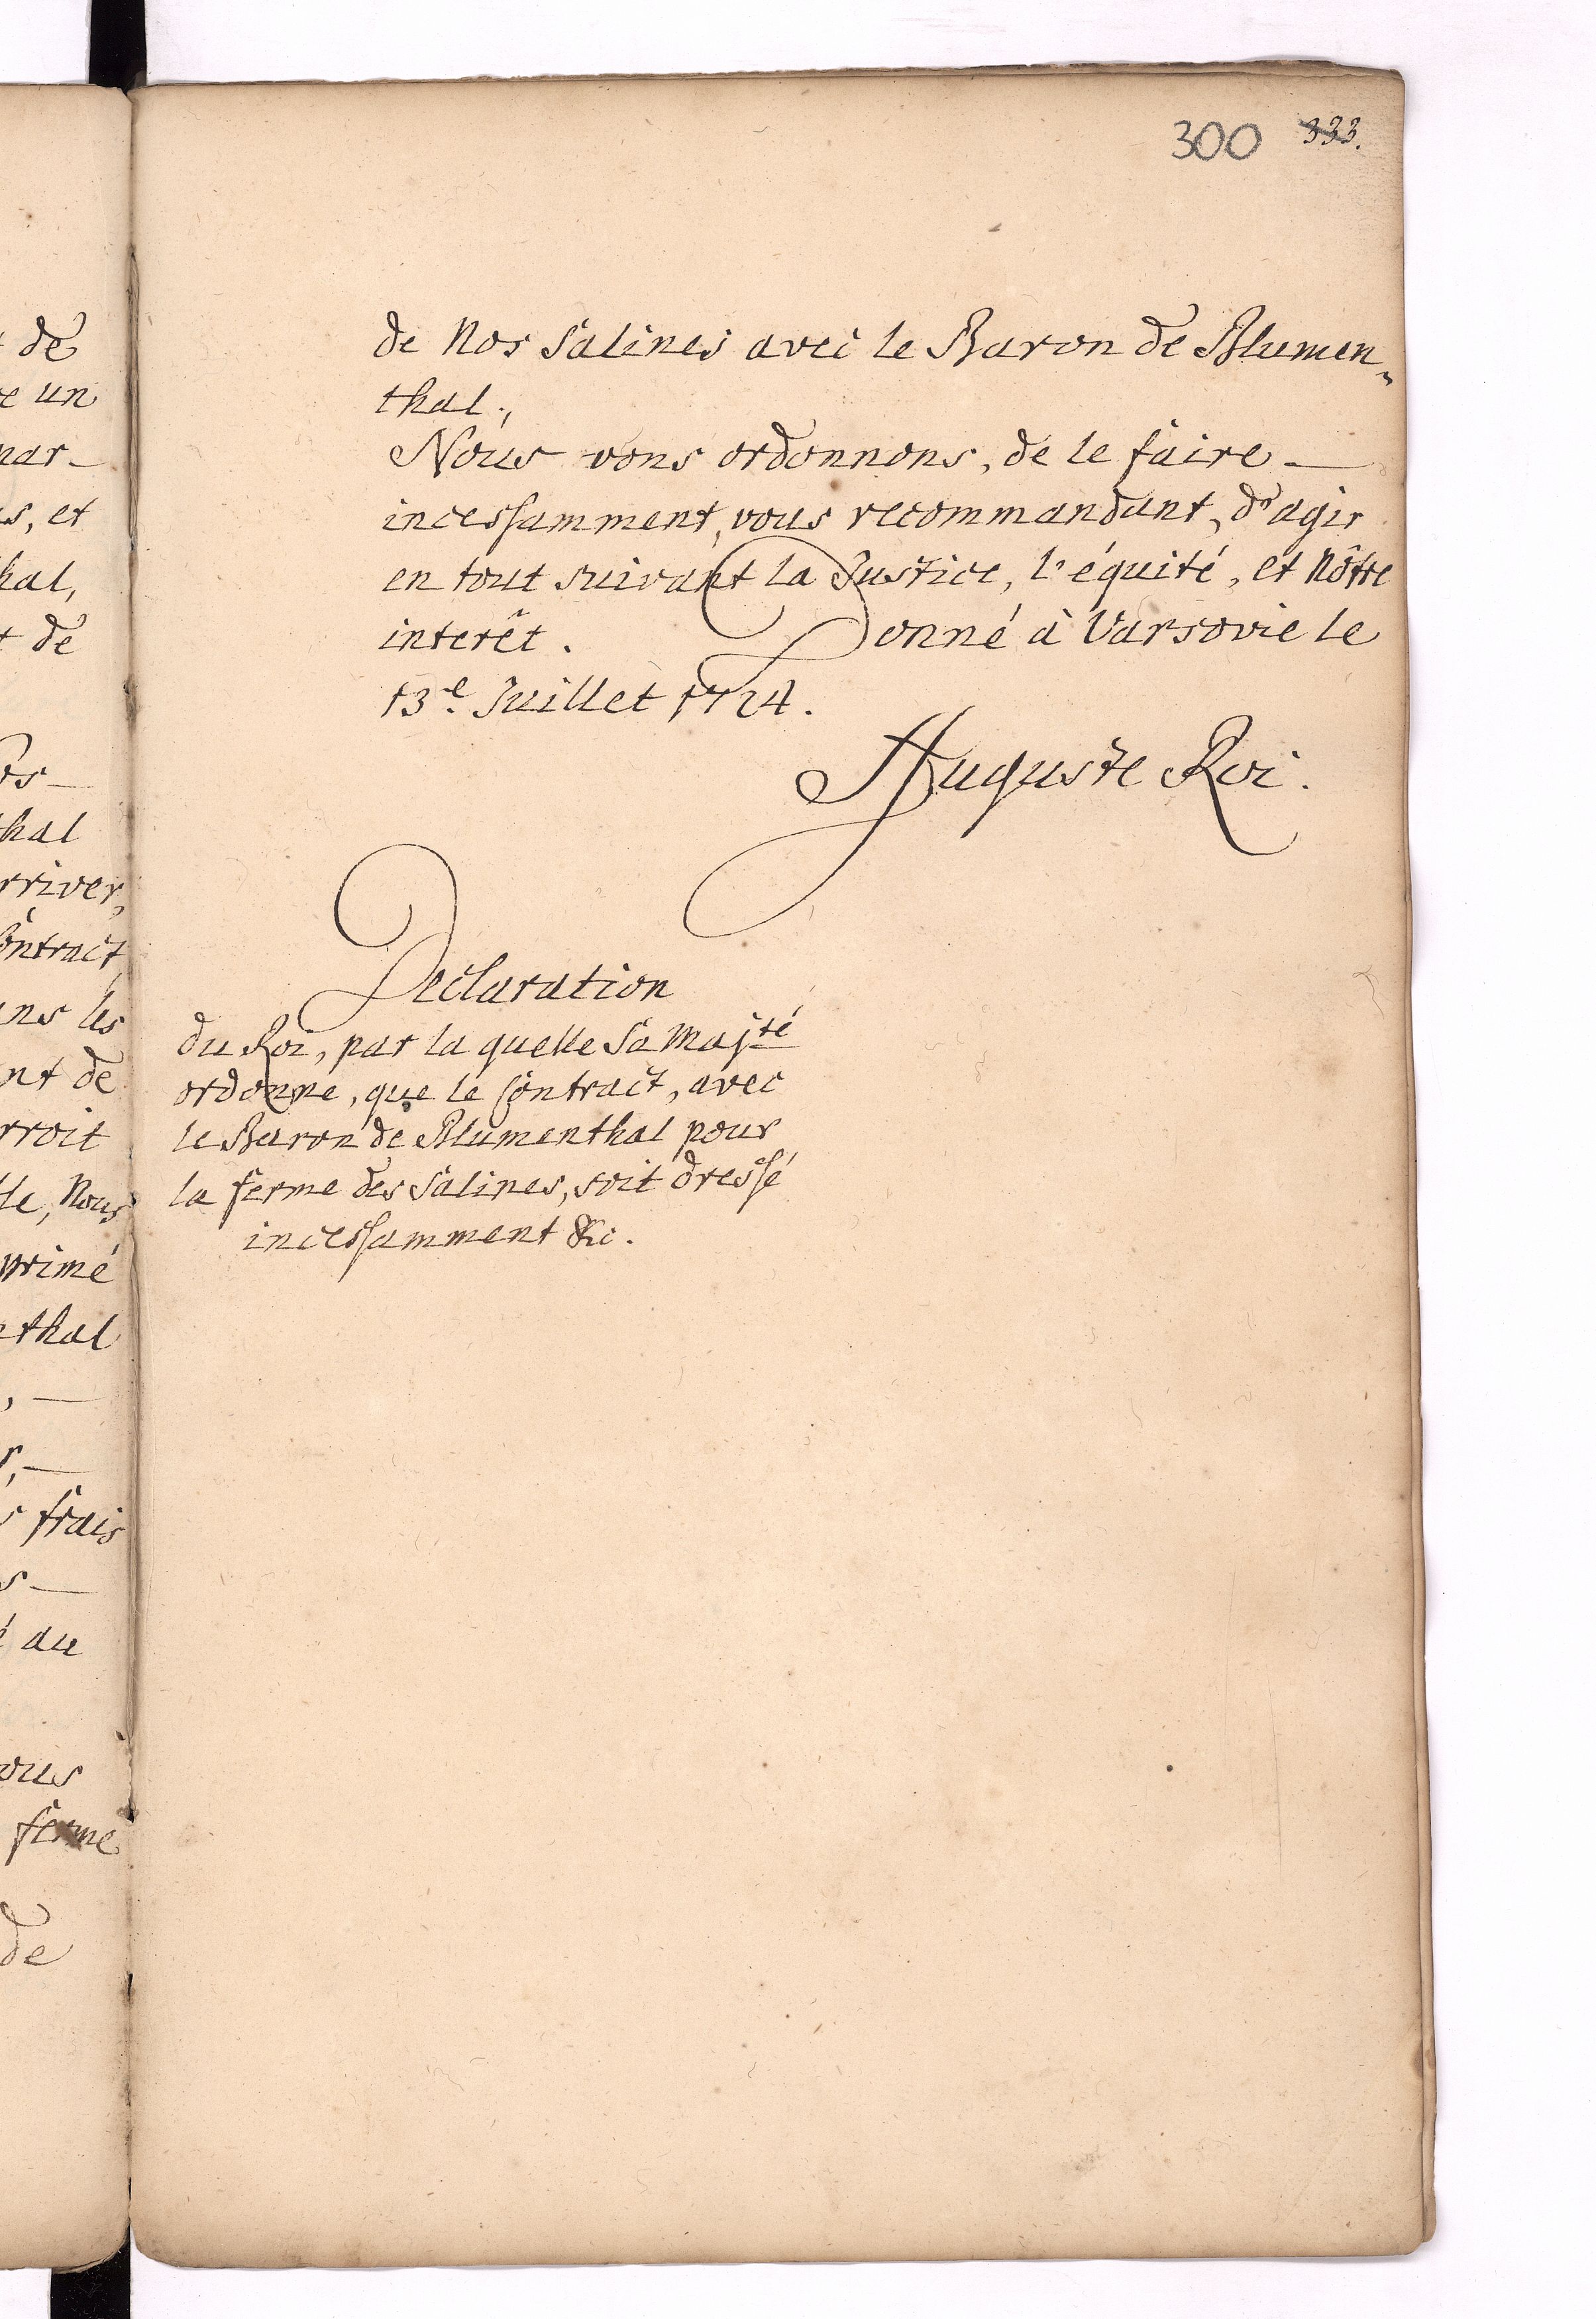 de
e un
mar-
s, et
hal,
t de
os
hal
rriver,
Contract
ans les
nt de
rroit
le, Nous
primé
nthal
frais
é au
vous
ferme
de
300 333.
de Nos Salines avec le Baron de Blumen„
thal.,
Nous vons ordonnons, de le faire
incessamment, vous recommandant, d'agir
en tout suivant la Justice, l'équité, et Nôtre
interêt. Donné à Varsovie le
13.e Juillet 1724.
Auguste Roi.
Declaration
du Roi, par la quelle Sa Majté
ordonne, que le Contract, avec
le Baron de Blumenthal pour
la ferme des Salines, soit dressé
incessamment &c.